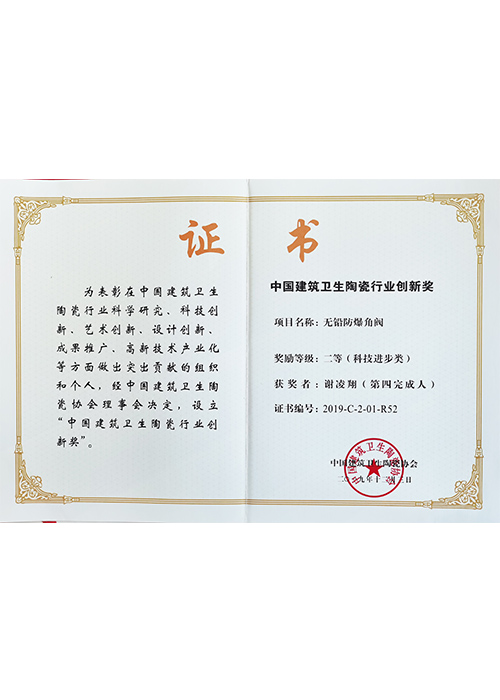 证 书
为表彰在中国建筑卫生
陶瓷行业科学研究、科技创
新、艺术创新、设计创新、
成果推广、高新技术产业化
等方面做出突出贡献的组织
和个人，经中国建筑卫生陶
瓷协会理事会决定，设立
“中国建筑卫生陶瓷行业创
新奖”。
中国建筑卫生陶瓷行业创新奖
项目名称：无铅防爆角阀
奖励等级：二等（科技进步类）
获 奖 者：谢凌翔（第四完成人）
证书编号：2019-C-2-01-R52
中国建筑卫生陶瓷协会
中国建筑卫生陶瓷协会